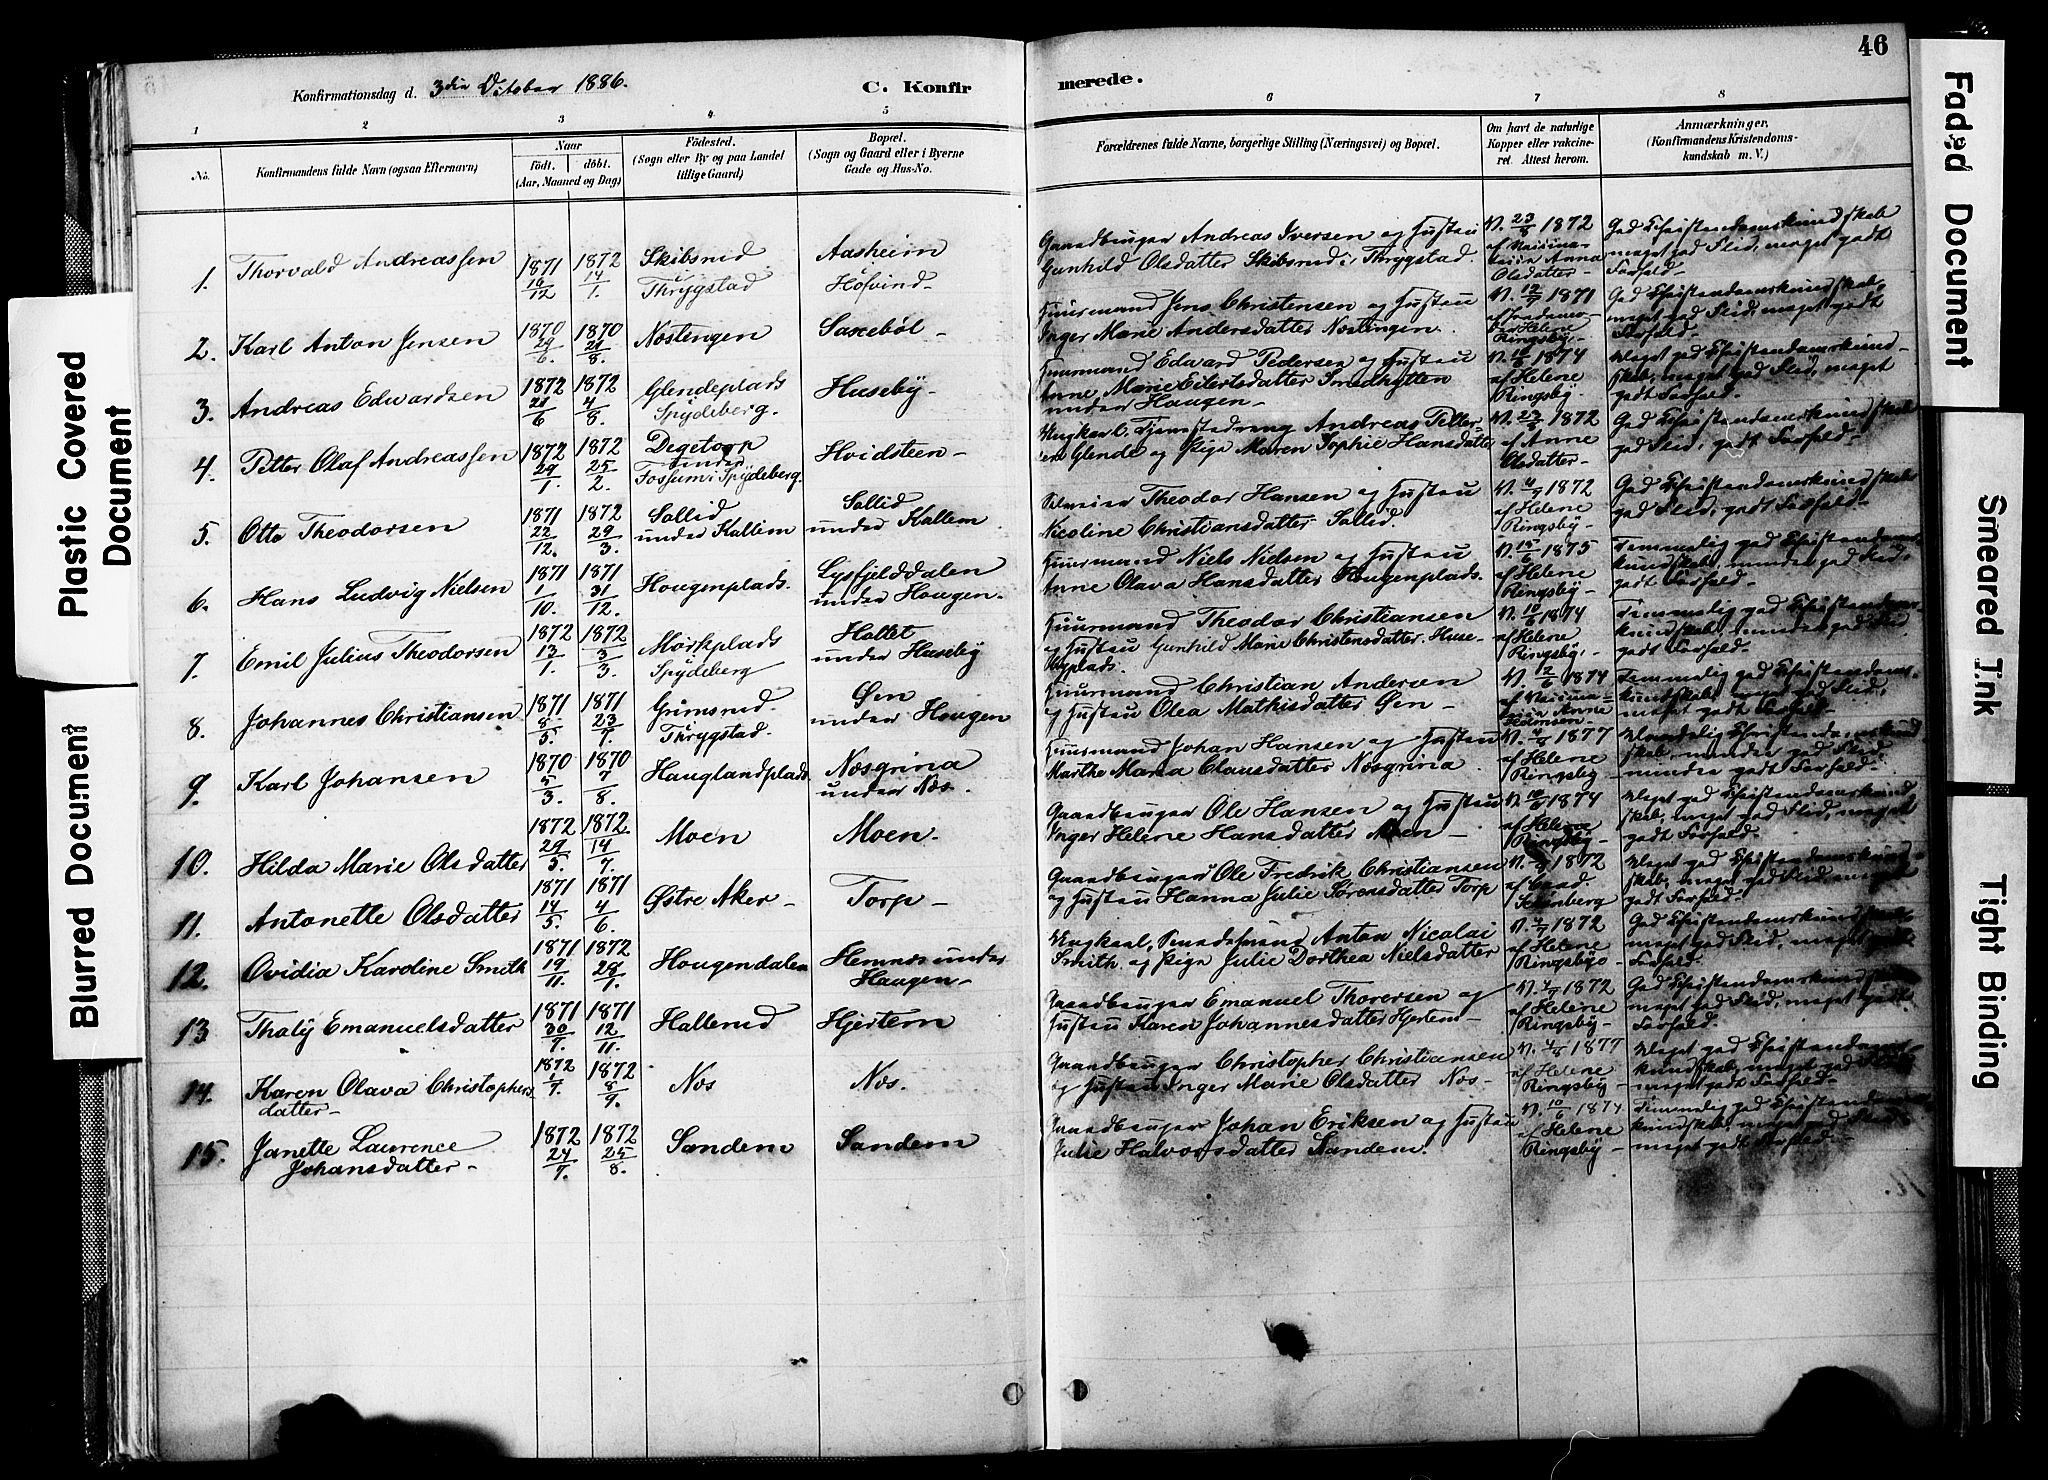 46
Konfirmationsdag d. 3die October 1886.
C. Konfirmerede.
1 2 3 4 5 6 7 8
No.
Konfirmandens fulde Navn (ogsaa Efternavn)
Naar
födt. döbt.
(Aar, Maaned og Dag)
Födested.
(Sogn eller By og paa Landet
tillige Gaard)
Bopæl.
(Sogn og Gaard eller i Byerne
Gade og Hus-No.
Forældrenes fulde Navne, borgerlige Stilling (Næringsvei) og Bopæl.
Om havt de naturlige
Kopper eller vakcine-
ret. Attest herom.
Anmærkninger.
(Konfirmandens Kristendoms-
kundskab m. V.)
1. Thorvald Andreassen 1871 16/12 1872 14/1. Skibsrud Thrygstad Aasheim Höfvind
Gaardbruger Andreas Iversen og Hustru
Gunhild Olsdatter Skibsrud i Thrygstad.
V. 23/8 1872 Anna Olsdatter
God Christendomskundskab
meget god Flid, meget godt
Forhold.
2. Karl Anton Jensen 1870 29/6. 1870 21/8. Nostengen Saxebøl
Huusmand Jens Christensen og Hustru
Inger Marie Andersdatter Nostingen.
V. 12/7 1871 Helene Ringsby.
God Christendomskundskab,
meget god Flid, meget godt
Forhold.
3. Andreas Edwardsen 1872 21/6 1872 4/8. Glendeplads Spydeberg. Huseby
Huusmand Edward Pedersen og Hustru
Anne Marie Eilertsdatter Smedhytten
under Haugen
V. 10/6 1874 af Helene Ringsby.
Meget god Christendomskund-
skab, meget god Flid, meget
godt Forhold.
4. Petter Olaf Andreassen 1872 29/1. 1872 25/2. Degetorp under Fossum i Spydeberg. Hvidsteen
Ungkarl, Andreas Petter-
sen Glende og Pige Maren Sophie Hansdatter
V. 23/8 1872 af Anne Olsdatter
God Christendomskundskab
god Flid, godt Forhold
5. Otto Theodorsen 1871 22/12. 1872 29/3. Sollid under Kallem Sollid under Kallem
Theodor Hansen og Hustru
Nicoline Christiansdatter Sollid.
V. 4/7 1872 af Helene Ringsby
God Christendomskundskab
god Flid, godt Forhold
6. Hans Ludvig Nielsen 1871 1/10. 1871 31/12. Hougenplads. Lysfjelddalen under Hougen.
Huusmand Niels Nielsen og Hustru
Anne Olava Hansdatter Hougenplads.
V. 15/6 1875 af Helene Ringsby
Temmelig god Christendoms-
kundskab, mindre god Flid,
godt Forhold.
7. Emil Julius Theodorsen 1872 13/1. 1872 3/3. Morkplads Spydeberg Holtet under Huseby
Huusmand Theodor Christiansen
og Hustru Gunhild Marie Christensdatter Huse-
byplads.
V. 10/6 1874 af Helene Ringsby.
Temmelig god Christendoms-
kundskab, mindre god Flid
godt Forhold.
8. Johannes Christiansen 1871 8/5. 1871 23/7. Grimsrud Thrygstad. Øen under Hougen
Huusmand Christian Andersen
og Hustru Olea Mathisdatter Øen
V. 12/6 1874 Anne
Temmelig god Christendoms-
kundskab, meget god Flid,
meget godt Forhold.
9. Karl Johansen 1870 5/3. 1870 7/8. Hauglandplads Nosgrina under Nos.
Huusmand Johan Hansen og Hustru
Marthe Maria Clausdatter Nosgrina
V. 4/8 1877 af Helene Ringsby
Maadelig Christendomskund
skab, mindre god Flid
mindre godt Forhold.
10. Hilda Marie Olsdatter 1872 29/5. 1872 14/7. Moen Moen.
Gaardbruger Ole Hansen og Hustru
Inger Helene Hansdatter Moen
V. 10/6 1874 af Helene Ringsby
Meget god Christendomskund
skab, meget god Flid, meget
godt Forhold.
11. Antonette Olsdatter 1871 14/5. 1871 4/6. Østre Aker Torp
Gaardbruger Ole Fredrik Christiansen
og Hustru Hanna Julie Sørensdatter Torp
1872 af
Meget god Christendomskund-
skab, meget god Flid, meget
godt Forhold.
12. Ovidia Karoline Smith 1871 19/11. 1872 28/1. Hougendalen Hemnes under Haugen
Ungkarl, Anton Nicolai
Smith og Pige Julie Dorthea Nielsdatter
V. 4/7 1872 af Helene Ringsby
God Christendomskundskab
meget god Flid, meget godt
Forhold.
13. Thaly Emanuelsdatter 1871 30/7. 1871 12/11. Hallerud Hjertem
Gaardbruger Emanuel Thorersen og
Hustru Karen Johannesdatter Hjertem
V. 4/7 1872 af Helene Ringsby
God Christendomskundskab
meget god Flid, meget godt
Forhold.
14. Karen Olava Christophers
datter 1872 1/7. 1872 8/9. Nos Nos.
Gaardbruger Christopher Christiansen
og Hustru Inger Marie Olsdatter Nos
V. 4/8 1877 af Helene Ringsby
Meget god Christendoms-
kundskab, meget god Flid
meget godt Forhold
15. Janette Laurence
Johansdatter 1872 24/7. 1872 25/8. Sandem Sandem
Gaardbruger Johan Eriksen og Hustru
Julie Halvorsdatter Sandem.
V. 10/6 1874 af Helene Ringsby
Temmelig god Christendoms
kundskab, meget god Flid
meget godt Forhold
Plastic Covered Document
Blurred Document
Faded Document
Smeared Ink
Tight Binding